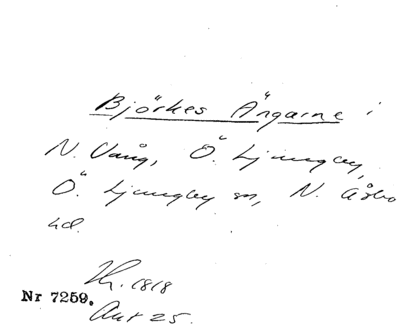 Björkes Ängarne i
N. Vång, Ö. Ljungby,
Ö. Ljungby sn, N. Åsbo
hd.
Th. 1818
Nr 7259.
Akt 25.